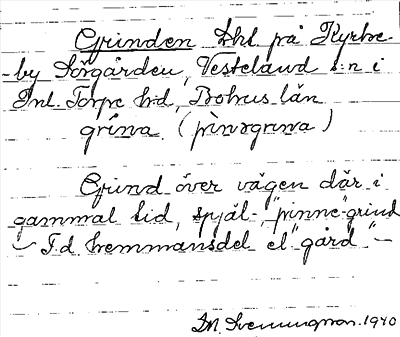 Grinden Lhl. på Kyrke-
by Sörgården, Västerland s:n i
Inl. Torpe hd, Bohus län
grína (pìnagrina)
Grind över vägen där i
gammal tid, spjäl-, "pinne"grind
– F.d. hemmansdel el. "gård" –
1940